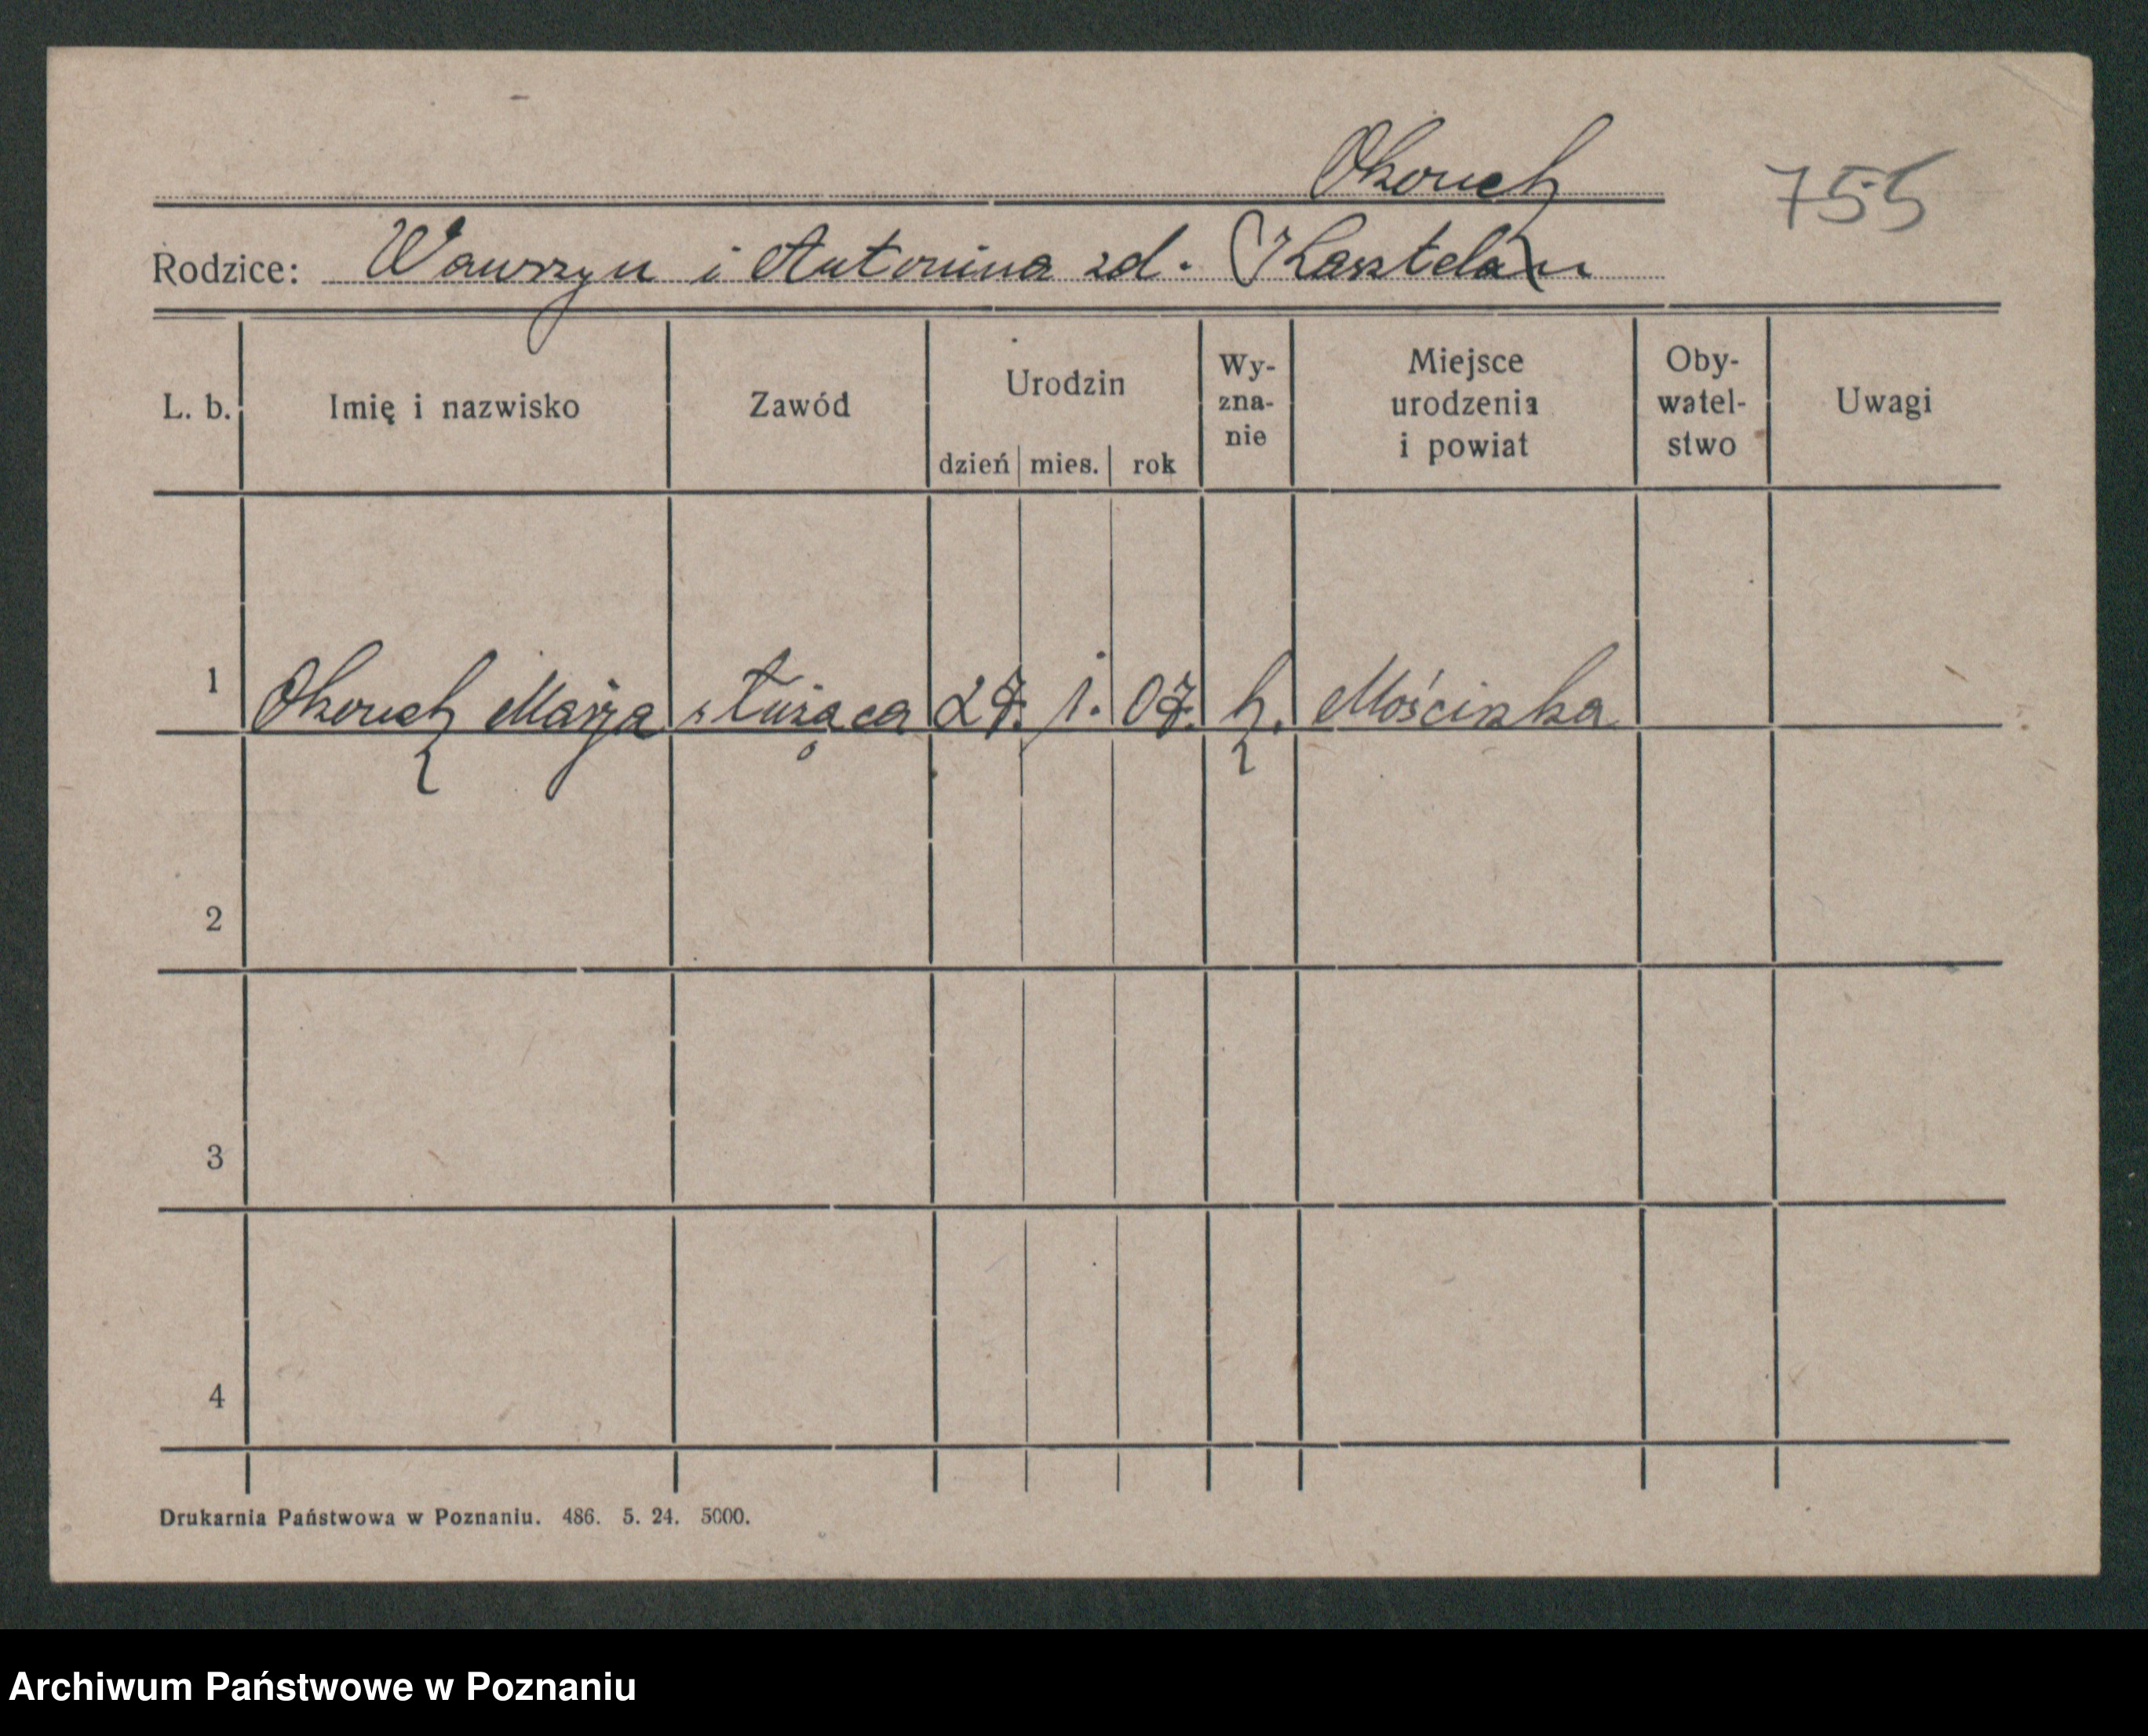 Okoniek
755
Rodzice: Wawrzyn i Antonina zd. Kasztelan
L. b. Imię i nazwisko Zawód Urodzin dzień mies. rok Wy-zna-nie Miejsce urodzenia i powiat Oby-watel-stwo Uwagi
1 Marja służąca 27. 1. 07. k. Mościszka
2
3
4
Drukarnia Państwowa w Poznaniu. 486. 5. 24. 5000.
Archiwum Państwowe w Poznaniu